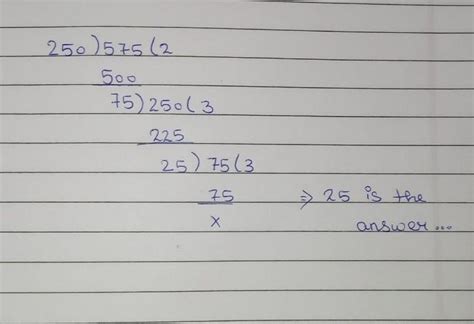 250)575(2
500
75)250(3
225
25)75(3
75 ⇒ 25 is the
x answer...